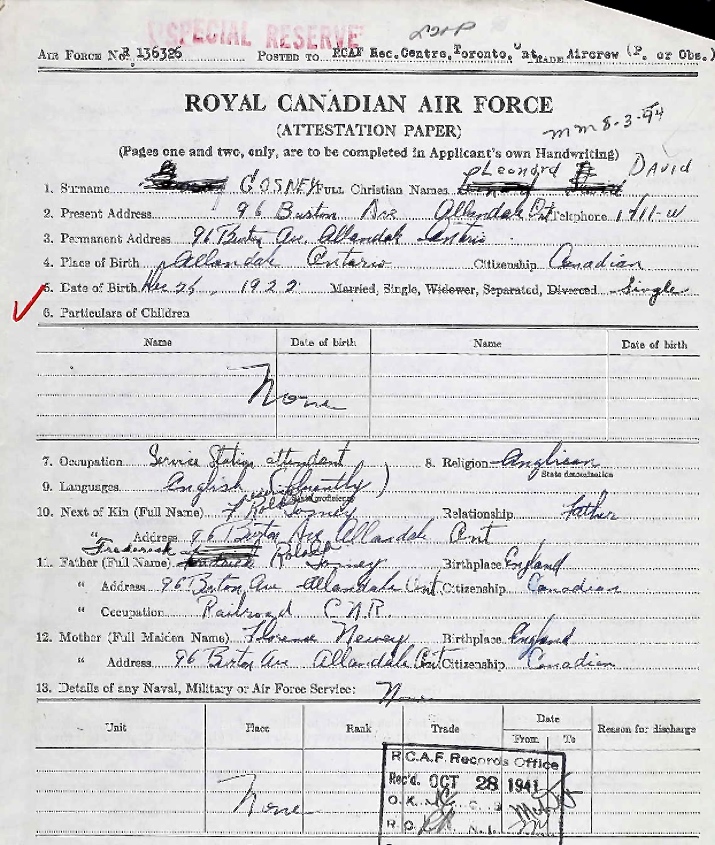 SPECIAL RESERVE
AIR FORCE No. R 136326 POSTED TO RCAF Rec. Centre, Toronto, Ont. TRADE Aircrew (P. or Obs.)
ROYAL CANADIAN AIR FORCE
mm 8-3-44
(ATTESTATION PAPER)
(Pages one and two, only, are to be completed in Applicant's own Handwriting)
1. Surname GOSNEY FULL Christian Names Leonard DAVID
2. Present Address 96 Burton Ave Allandale Ont Telephone
3. Permanent Address 96 Burton Av. Allandale Ontario
4. Place of Birth Allandale Ontario Citizenship Canadian
5. Date of Birth Dec 26, 1922 Married, Single, Widower, Separated, Divorced Single
6. Particulars of Children
Name Date of birth Name Date of birth
None
7. Occupation Service Station attendant 8. Religion Anglican
State denomination
9. Languages English (fluently)
State proficiency
10. Next of Kin (Full Name) F Gosney Relationship Father
" Address 96 Burton Ave Allandale Ont
Frederick
11. Father (Full Name) Gosney Birthplace England
" Address 96 Burton Ave Allandale Ont. Citizenship Canadian
" Occupation Railroad C.N.R.
12. Mother (Full Maiden Name) Florence Newey Birthplace England
" Address 96 Burton Ave Allandale Ont. Citizenship Canadian
13. Details of any Naval, Military or Air Force Service: None
Unit Place Rank Trade Date Reason for discharge
From To
None
R.C.A.F. Records Office
Rec'd. OCT 28 1941
O. K.
R. O.